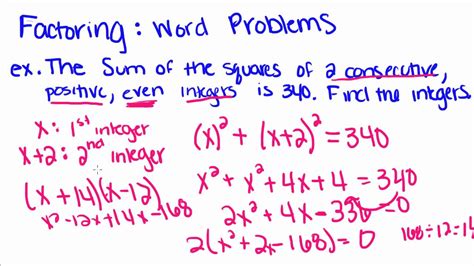 Factoring: Word Problems
ex. The Sum of the squares of 2 consecutive,
positive, even integers is 340. Find the integers.
x: 1st integer
x+2: 2nd integer
(x+14)(x-12)
x²-12x+14x-168
(x)² + (x+2)² = 340
x² + x² + 4x + 4 = 340
2x² + 4x - 336 = 0
2(x² + 2x - 168) = 0
168÷12=14